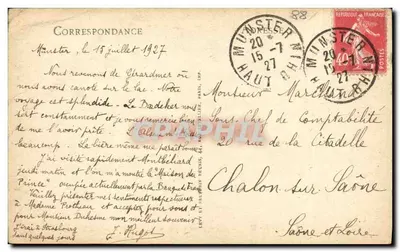 CORRESPONDANCE
Munster, le 15 juillet 1927
Nous revenons de Girardmer où
nous avons canoté sur le lac. Notre
voyage est splendide. Le Baedeker nous
sert constamment et je vous remercie bien
de me l'avoir prêté.
beaucoup. La bière même me paraît
J'ai visité rapidement Montbéliard
jeudi matin et l'on m'a montré la "Maison du
Prince" occupée actuellement par la Banque de France
Veuillez présenter mes sentiments respectueux
à Madame et accepter pour vous et
pour Monsieur Duhesme mon meilleur souvenir
J'irai à Strasbourg
dans quelques jours
J. Hugot
88
ADRESSE
MUNSTER
20
15-7
27
HAUT RHIN
MUNSTER
20
15-7
27
HAUT RHIN
40c
POSTES
Monsieur
Sous-Chef de Comptabilité
rue de la Citadelle
Chalon sur Saône
Saône et Loire
CPHRIH